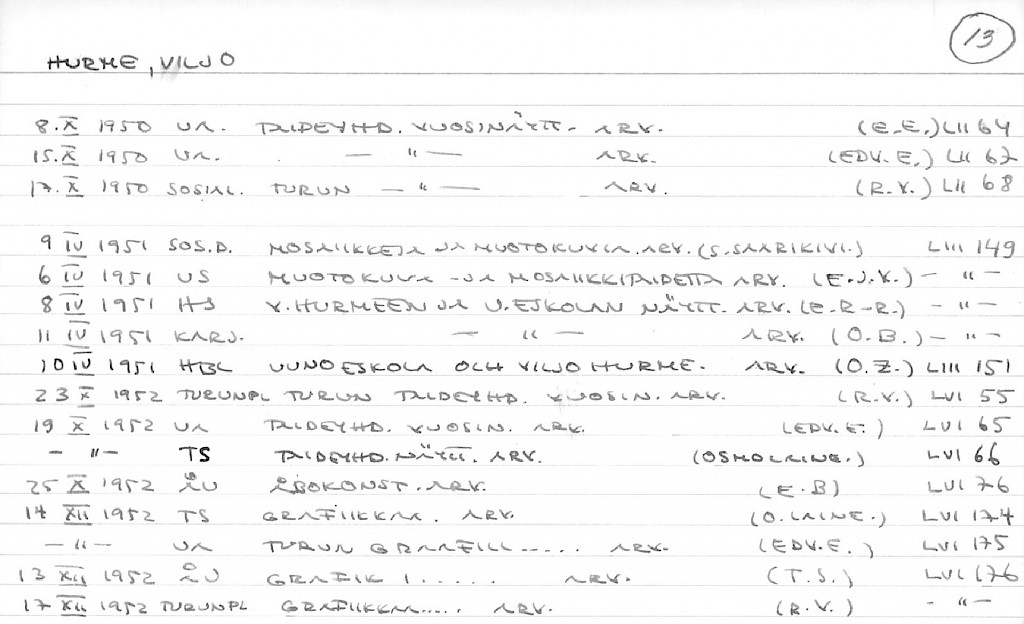 13
HURME, VILJO
8.X 1950 UA. TAIDEYHD. VUOSINÄYTT. ARV. (E.E.) LII 64
15.X 1950 UA. — " — ARV. (EDV. E.) LII 67
17.X 1950 SOSIAL. TURUN — " — ARV. (R.V.) LII 68
9 IV 1951 SOS.D. MOSAIIKKEJA JA MUOTOKUVIA. ARV. (S. SAARIKIVI.) LIII 149
6 IV 1951 US MUOTOKUVA - JA MOSAIIKKITAIDETTA ARV. (E.J.V.) - " -
8 IV 1951 HS V. HURMEEN JA U. ESKOLAN NÄYTT. ARV. (E.R-R.) - " -
11 IV 1951 KARJ. — " — ARV. (O.B.) - " -
10 IV 1951 HBL UUNO ESKOLA OCH VILJO HURME. ARV. (O.Z.) LIII 151
23 X 1952 TURUNPL TURUN TAIDEYHD. VUOSIN. ARV. (R.V.) LVI 55
19 X 1952 UA TAIDEYHD. VUOSIN. ARV. (EDV.E.) LVI 65
- " - TS TAIDEYHD. NÄYTT. ARV. (OSMO LAINE.) LVI 66
25 X 1952 ÅU ÅBOKONST. ARV. (E.B) LVI 76
14 XII 1952 TS GRAFIIKKAA. ARV. (O. LAINE.) LVI 174
- " - UA TURUN GRAAFILL..... ARV. (EDV.E.) LVI 175
13 XII 1952 ÅU GRAFIK I..... ARV. (T.S.) LVI 176
17 XII 1952 TURUNPL GRAFIIKKAA..... ARV. (R.V.) - " -